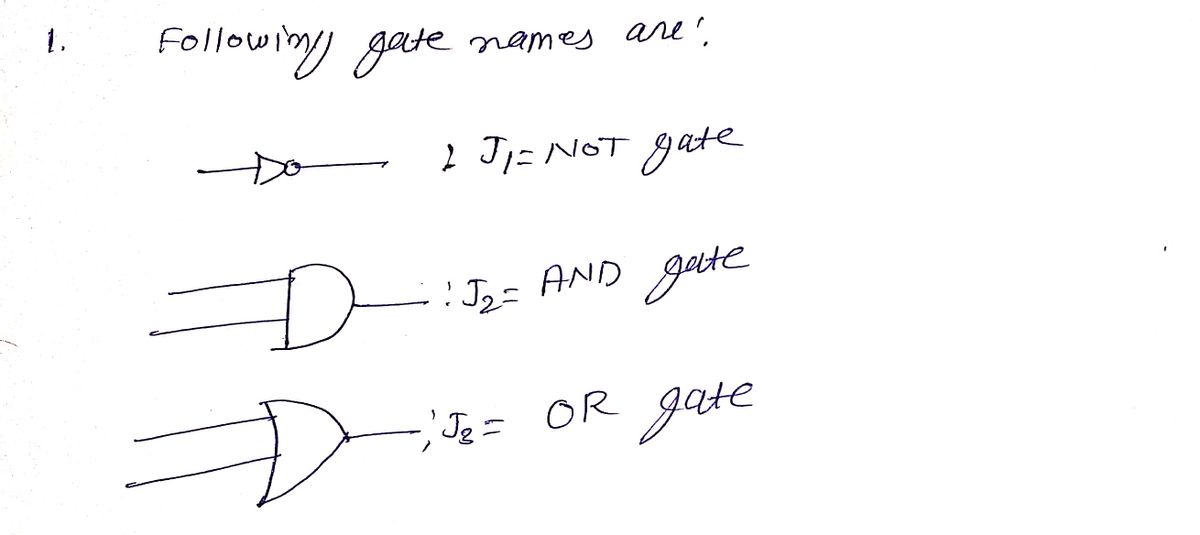 1. Following gate names are:
: J1= NOT gate
: J2= AND gate
; J3= OR gate